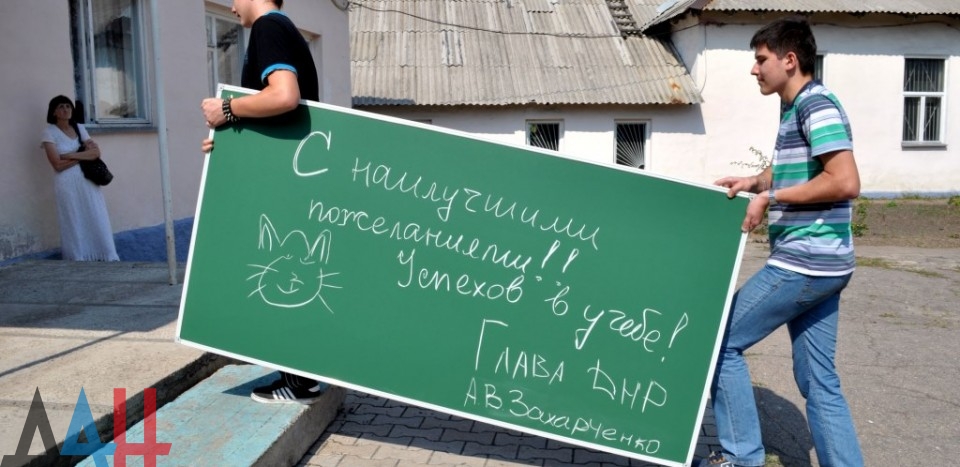 С наилучшими
пожеланиями!!
Успехов в учебе!
Глава ДНР
АВЗахарченко
ДАН